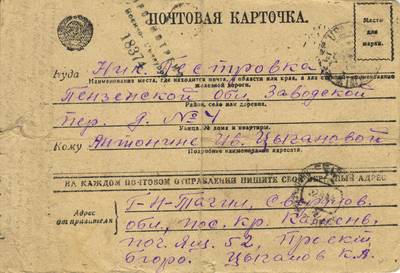 ПОЧТОВАЯ КАРТОЧКА.
Место
для
марки.
Куда Ник Пестровка
Наименование места, где находится почта, и области или края, а для станций наименование
железной дороги.
Пензенской обл. Заводской
Район, село или деревня.
пер. д. № 4
Улица, № дома и квартиры.
Кому Антонине Ив. Цыгановой
Подробное наименование адресата.
НА КАЖДОМ ПОЧТОВОМ ОТПРАВЛЕНИИ ПИШИТЕ СВОЙ АДРЕС
Адрес
отправителя
Г-Н-Тагил, Свердлов.
обл, пос. Кр. Камень,
поч. Ящ. 52, Проект
бюро. Цыганов К.А.